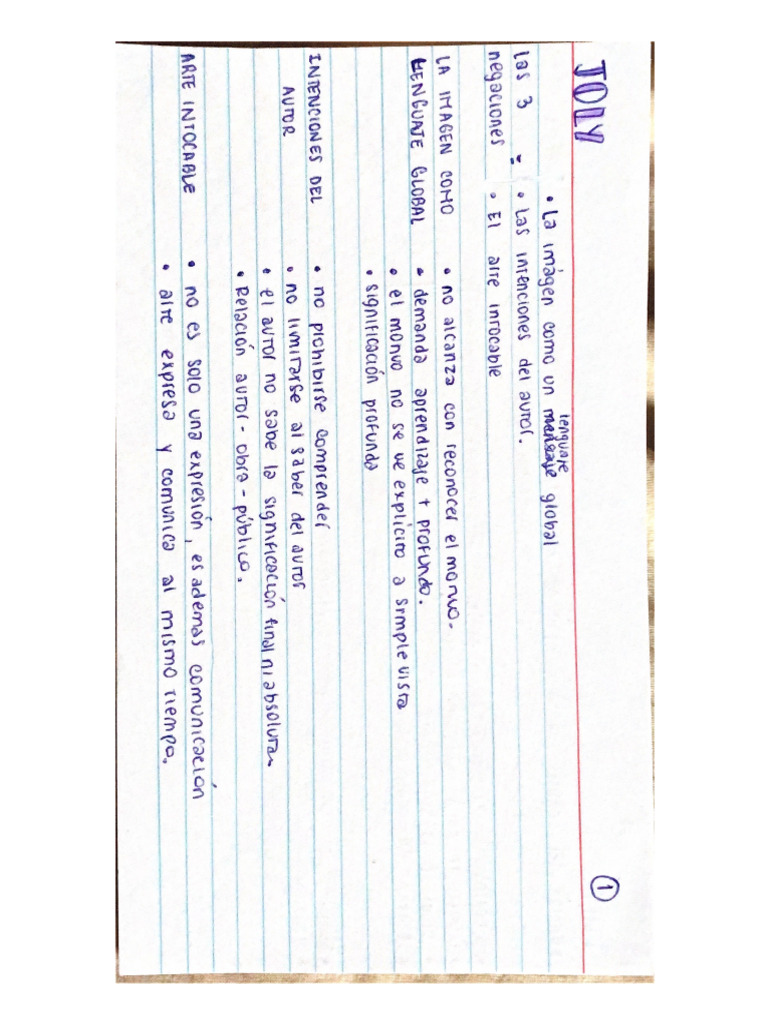 JOLY
①
lenguaje
• La imágen como un mensaje global
las 3 : • Las intenciones del autor.
negaciones • El arte intocable
LA IMAGEN COMO • no alcanza con reconocer el motivo.
LENGUAJE GLOBAL • demanda aprendizaje + profundo.
• el motivo no se ve explícito a simple vista
• significación profunda
INTENCIONES DEL • no prohibirse comprender
AUTOR • no limitarse al saber del autor
• el autor no sabe la significación final ni absoluta.
• Relación autor - obra - público.
ARTE INTOCABLE • no es solo una expresión, es ademas comunicación
• arte expresa y comunica al mismo tiempo.